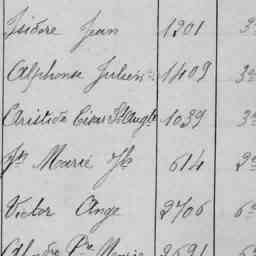 Isidore Jean 1201 3
Alphonse Julien 1409 3
Aristide César St Ange 1039 3
Marie 614 2
Victor Ange 2706 6
Marie 2691 6